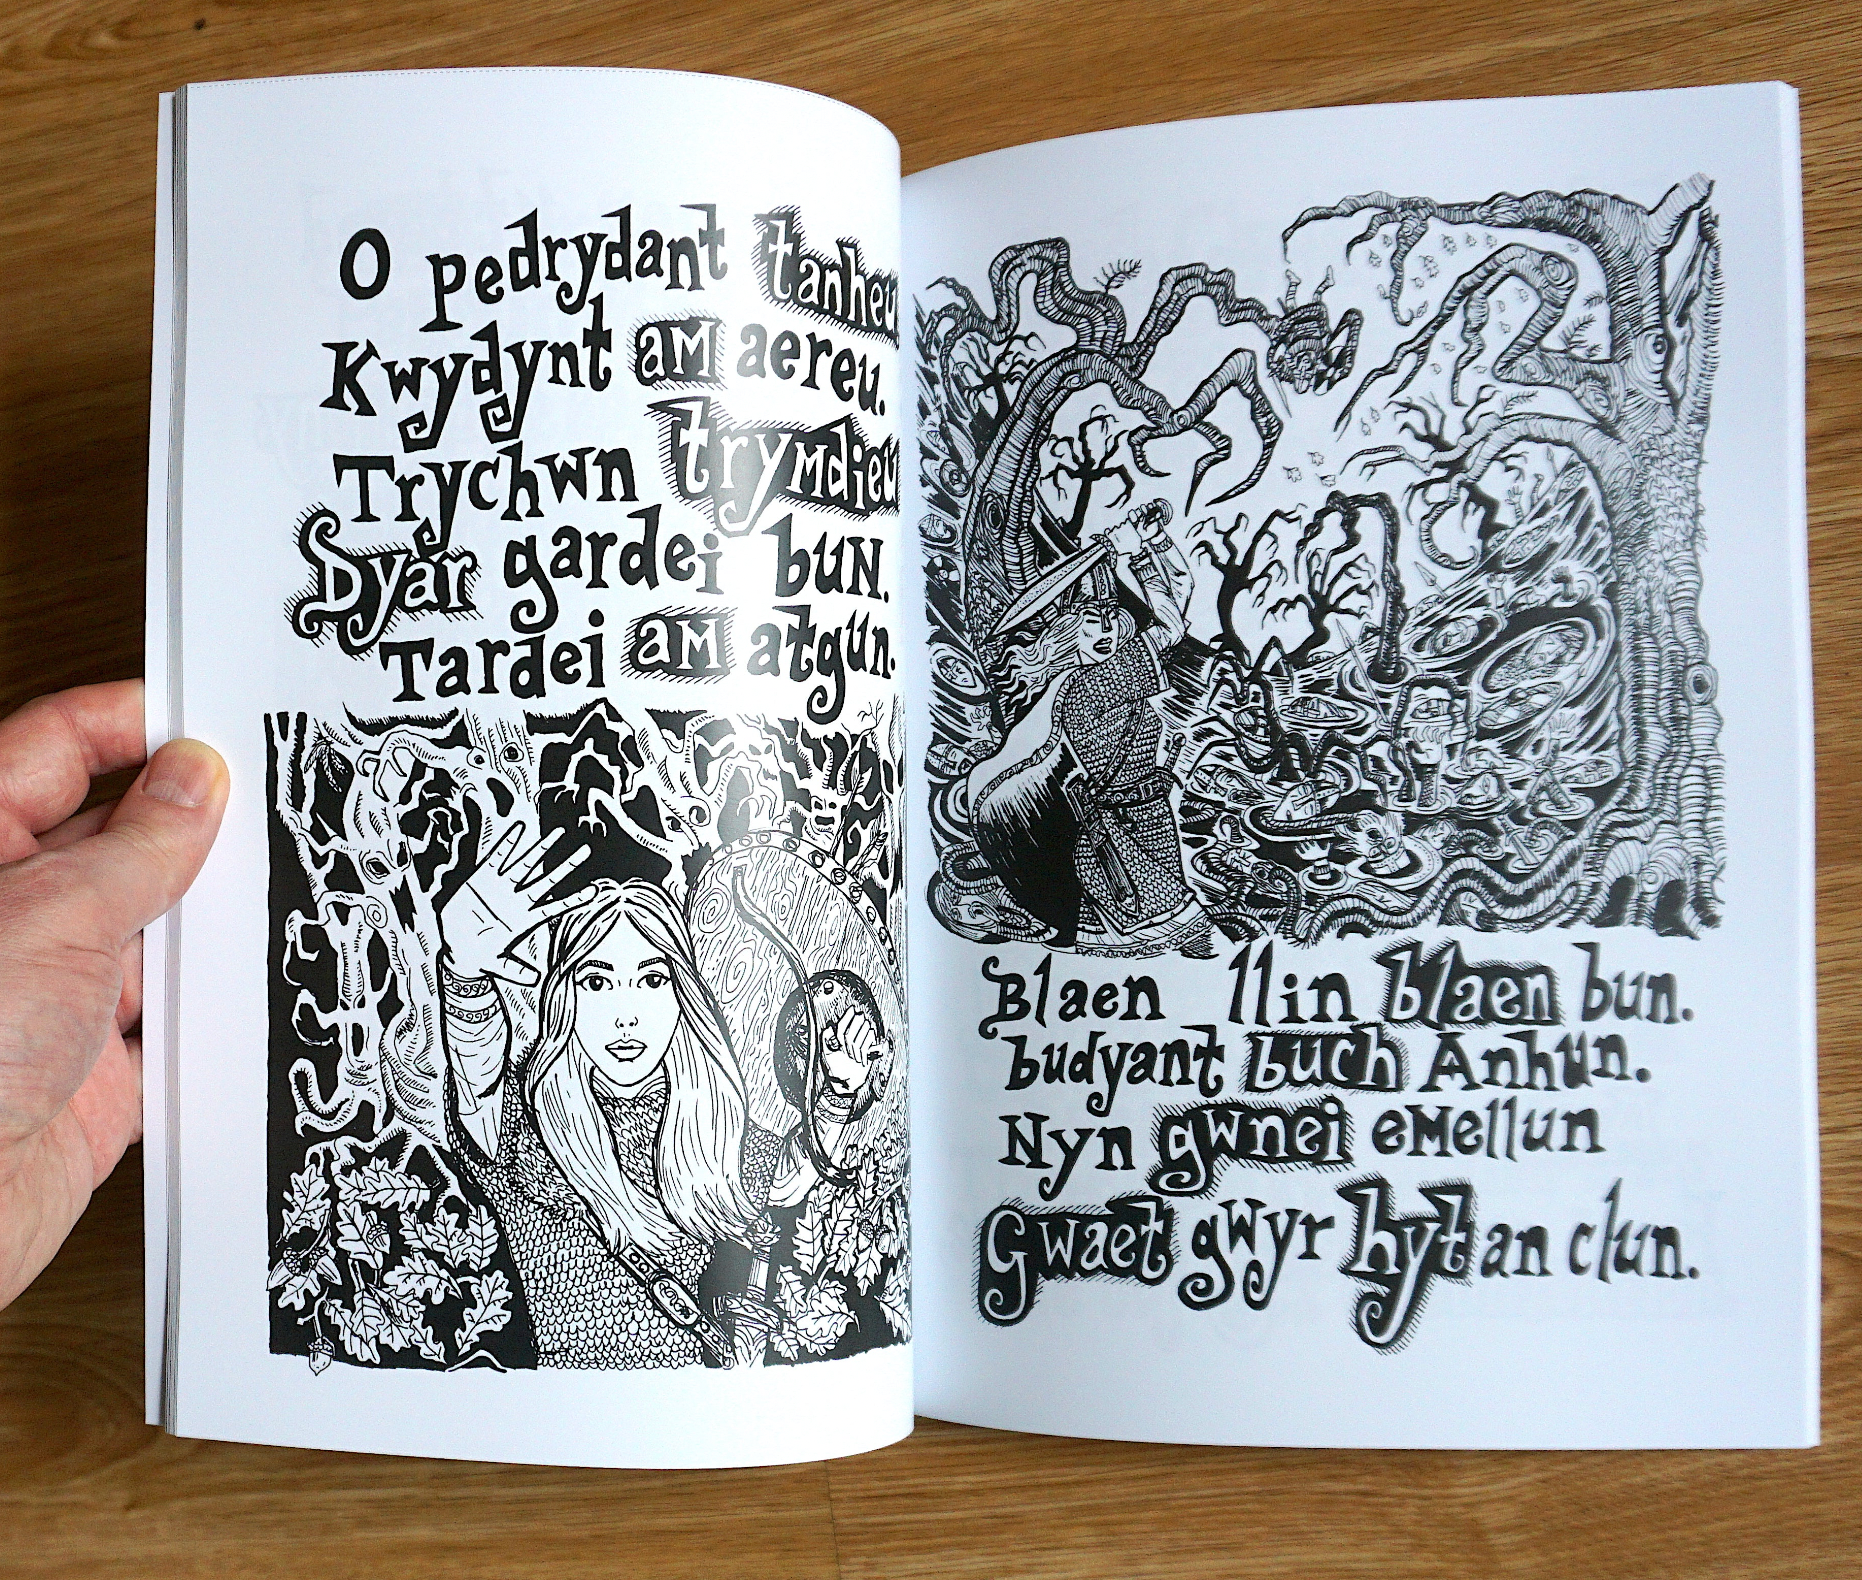 O pedrydant tanheu
Kwydynt am aereu.
Trychwn trymdieu
Dyar gardei bun.
Tardei am atgun.
Blaen llin blaen bun.
budyant buch Anhun.
Nyn gwnei emellun
Gwaet gwyr hyt an clun.